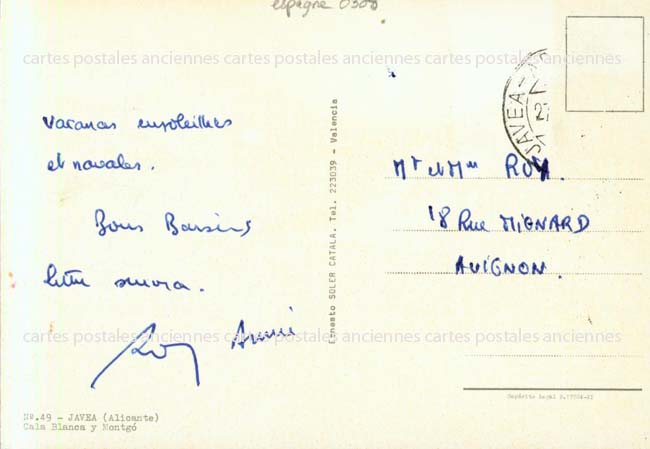 espagne 0306
cartes postales anciennes cartes postales anciennes cartes postales anciennes
JAVEA
Vacances ensoleillées
et navales.
Bons Baisers
lettre suivra.
Annie
Ernesto SOLER CATALA. Tel. 223039 - Valencia
Mr et Mme ROUX.
18 Rue MIGNARD
AVIGNON.
cartes postales anciennes cartes postales anciennes cartes postales anciennes
Depósito Legal
Nº.49 - JAVEA (Alicante)
Cala Blanca y Montgó